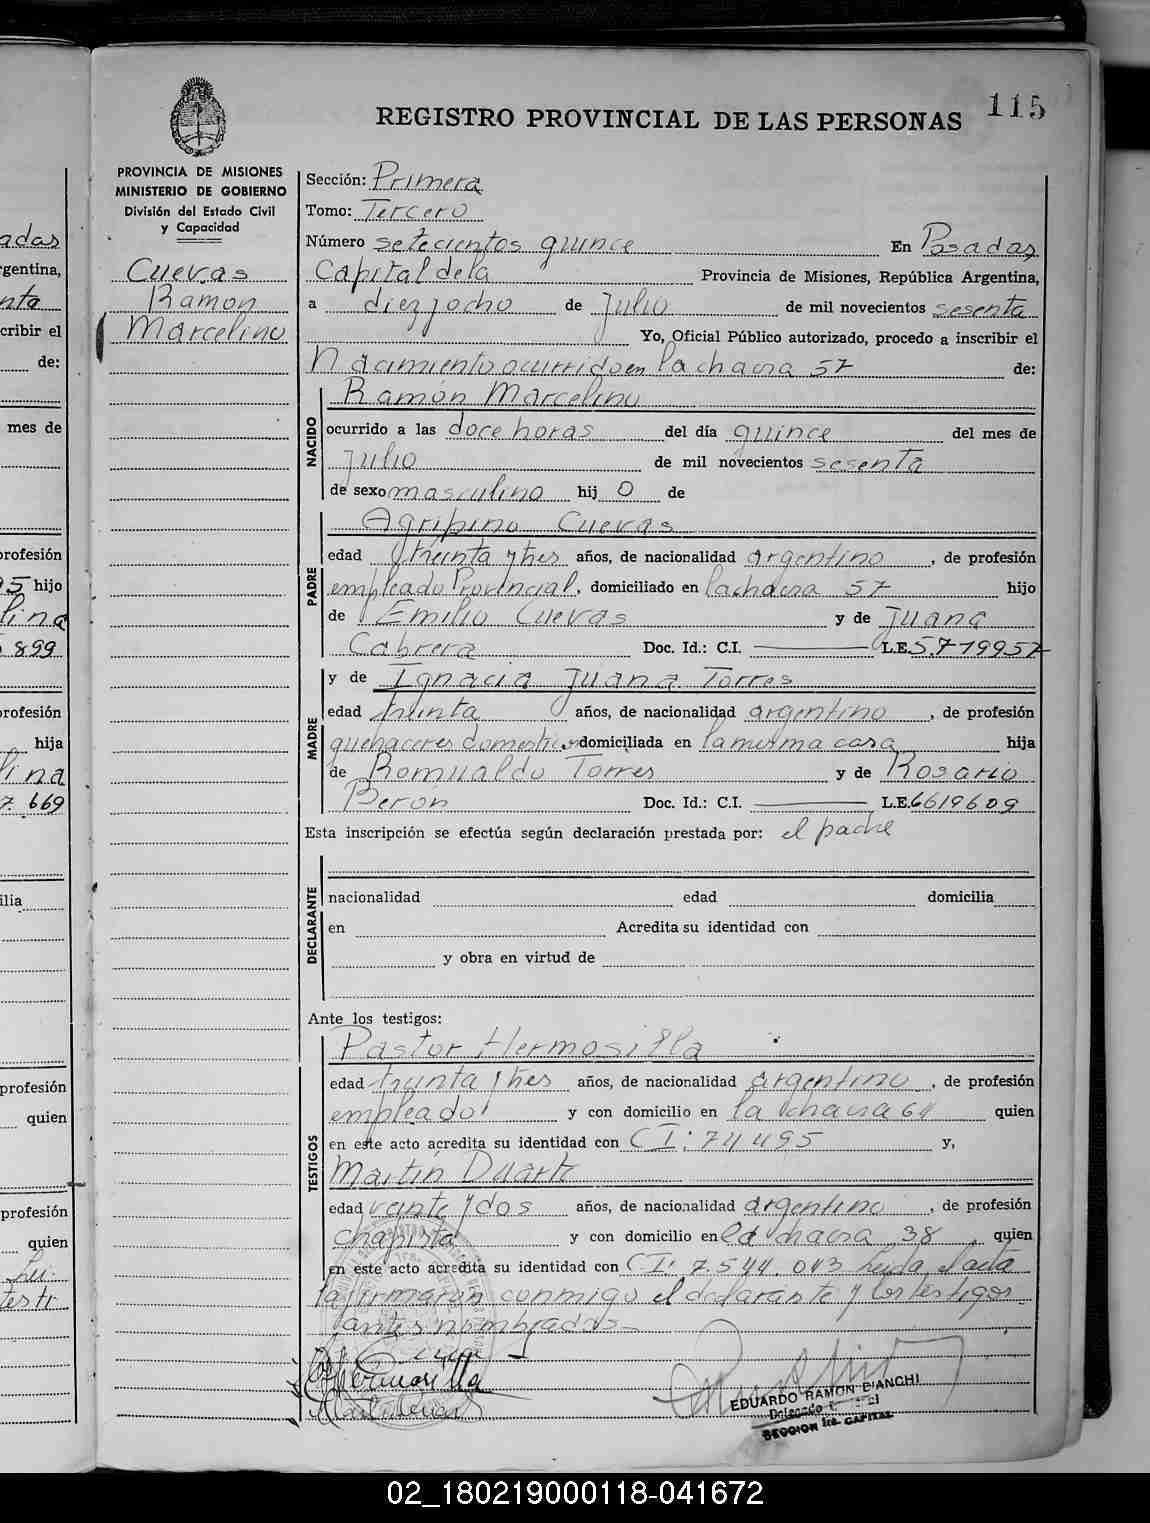 115
REGISTRO PROVINCIAL DE LAS PERSONAS
PROVINCIA DE MISIONES
MINISTERIO DE GOBIERNO
División del Estado Civil
y Capacidad
Cuevas
Ramon
Marcelino
Sección: Primera
Tomo: Tercero
Número setecientos quince En Posadas
Capital de la Provincia de Misiones, República Argentina,
a diez y ocho de Julio de mil novecientos sesenta
Yo, Oficial Público autorizado, procedo a inscribir el
Nacimiento ocurrido en la chacra 57 de:
NACIDO
Ramón Marcelino
ocurrido a las doce horas del día quince del mes de
Julio de mil novecientos sesenta
de sexo masculino hij o de
PADRE
Agripino Cuevas
edad treinta y tres años, de nacionalidad argentino, de profesión
empleado Provincial, domiciliado en la chacra 57 hijo
de Emilio Cuevas y de Juana
Cabrera Doc. Id.: C.I. L.E. 5.719957
MADRE
y de Ignacia Juana Torres
edad treinta años, de nacionalidad argentino, de profesión
quehaceres domesticos domiciliada en la misma casa hija
de Romualdo Torres y de Rosario
Berón Doc. Id.: C.I. L.E. 6619609
Esta inscripción se efectúa según declaración prestada por: el padre
DECLARANTE
nacionalidad edad domicilia
en Acredita su identidad con
y obra en virtud de
Ante los testigos:
TESTIGOS
Pastor Hermosilla
edad treinta y tres años, de nacionalidad argentino, de profesión
empleado y con domicilio en la chacra 64 quien
en este acto acredita su identidad con CI: 74495 y,
Martín Duarte
edad veinte y dos años, de nacionalidad argentino, de profesión
chapista y con domicilio en la chacra 38 quien
en este acto acredita su identidad con CI: 7.544.043 Leida el acta
la firmaron conmigo el declarante y los testigos
antes nombrados
Hermosilla
EDUARDO RAMON BIANCHI
Delegado
SECCION 1ra. CAPITAL
adas
rgentina,
nta
cribir el
de:
mes de
profesión
hijo
lina
899
profesión
hija
lina
669
ilia
profesión
quien
profesión
quien
02_180219000118-041672